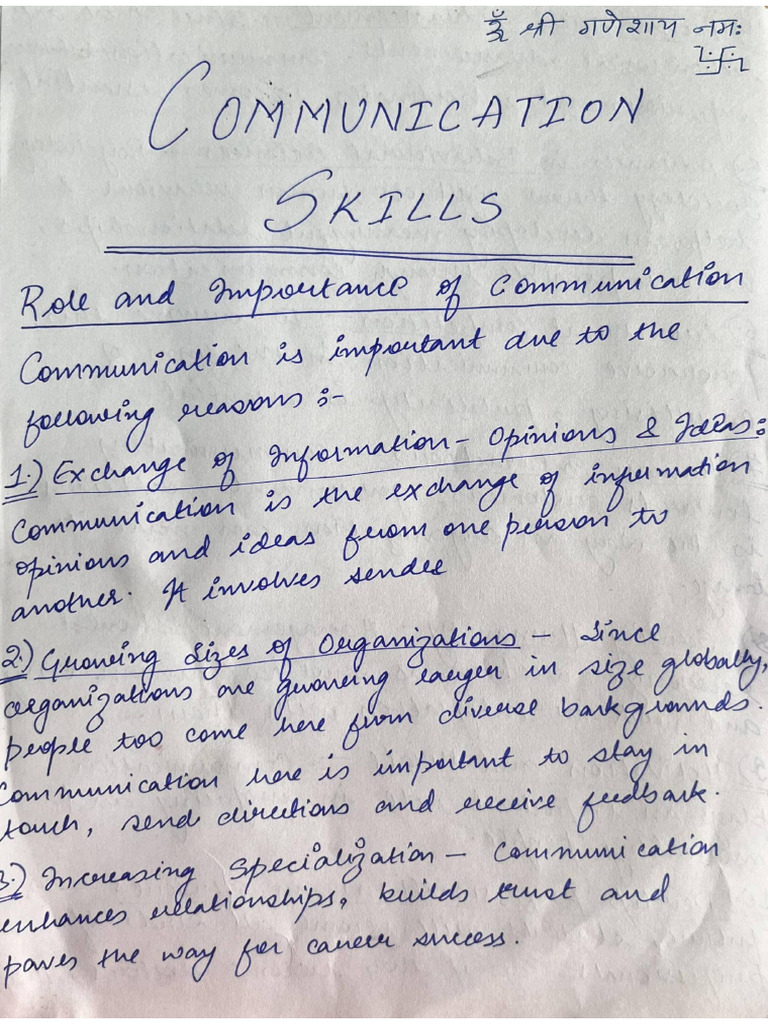 ॐ श्री गणेशाय नमः
卐
COMMUNICATION
SKILLS
Role and Importance of Communication
Communication is important due to the
following reasons :-
1.) Exchange of Information - Opinions & Ideas:
Communication is the exchange of information
opinions and ideas from one person to
another. It involves sender
2.) Growing Sizes of Organizations - Since
organizations are growing larger in size globally,
people too come here from diverse backgrounds.
Communication here is important to stay in
touch, send directions and receive feedback.
3.) Increasing Specialization - Communication
enhances relationships, builds trust and
paves the way for career success.